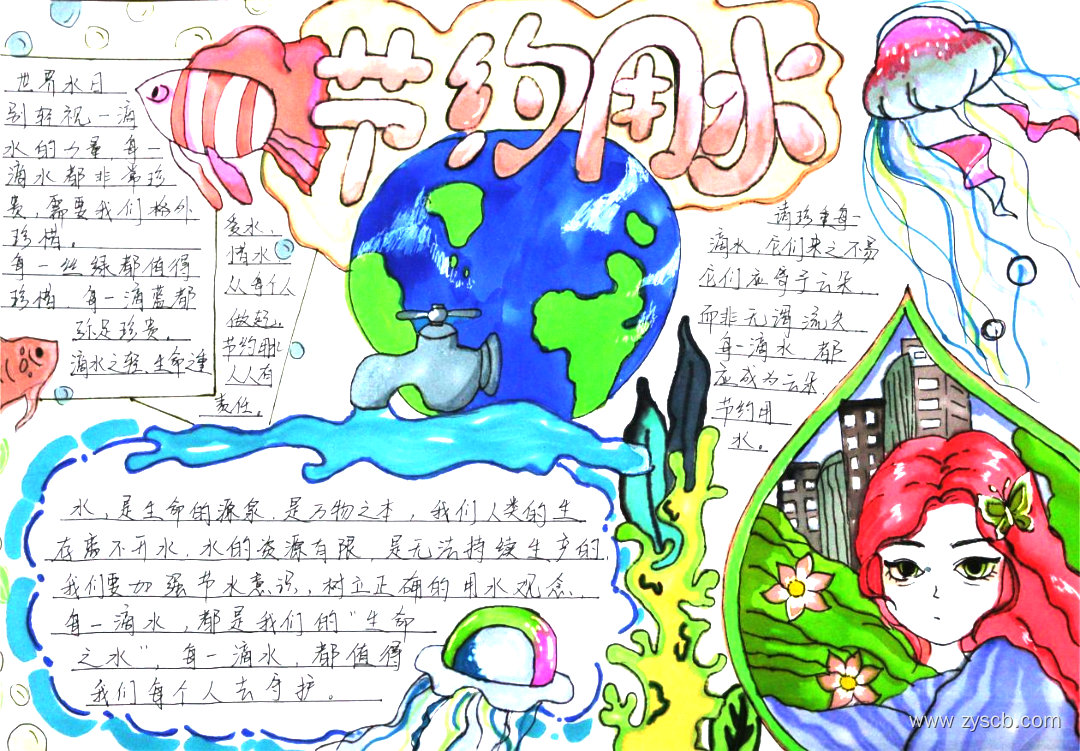 节约用水
世界水日
别轻视一滴
水的力量，每一
滴水都非常珍
贵，需要我们格外
珍惜。
每一丝绿都值得
珍惜，每一滴蓝都
弥足珍贵。
滴水之轻，生命之重
爱水、
惜水
从每个人
做起。
节约用水
人人有
责任。
请珍重每一
滴水，它们来之不易
它们应归于云朵
而非无谓流失
每一滴水 都
应成为云朵
节约用
水。
水，是生命的源泉，是万物之本，我们人类的生
存离不开水，水的资源有限，是无法持续生产的，
我们要加强节水意识，树立正确的用水观念，
每一滴水，都是我们的“生命
之水”，每一滴水，都值得
我们每个人去守护。
www.zyscb.com